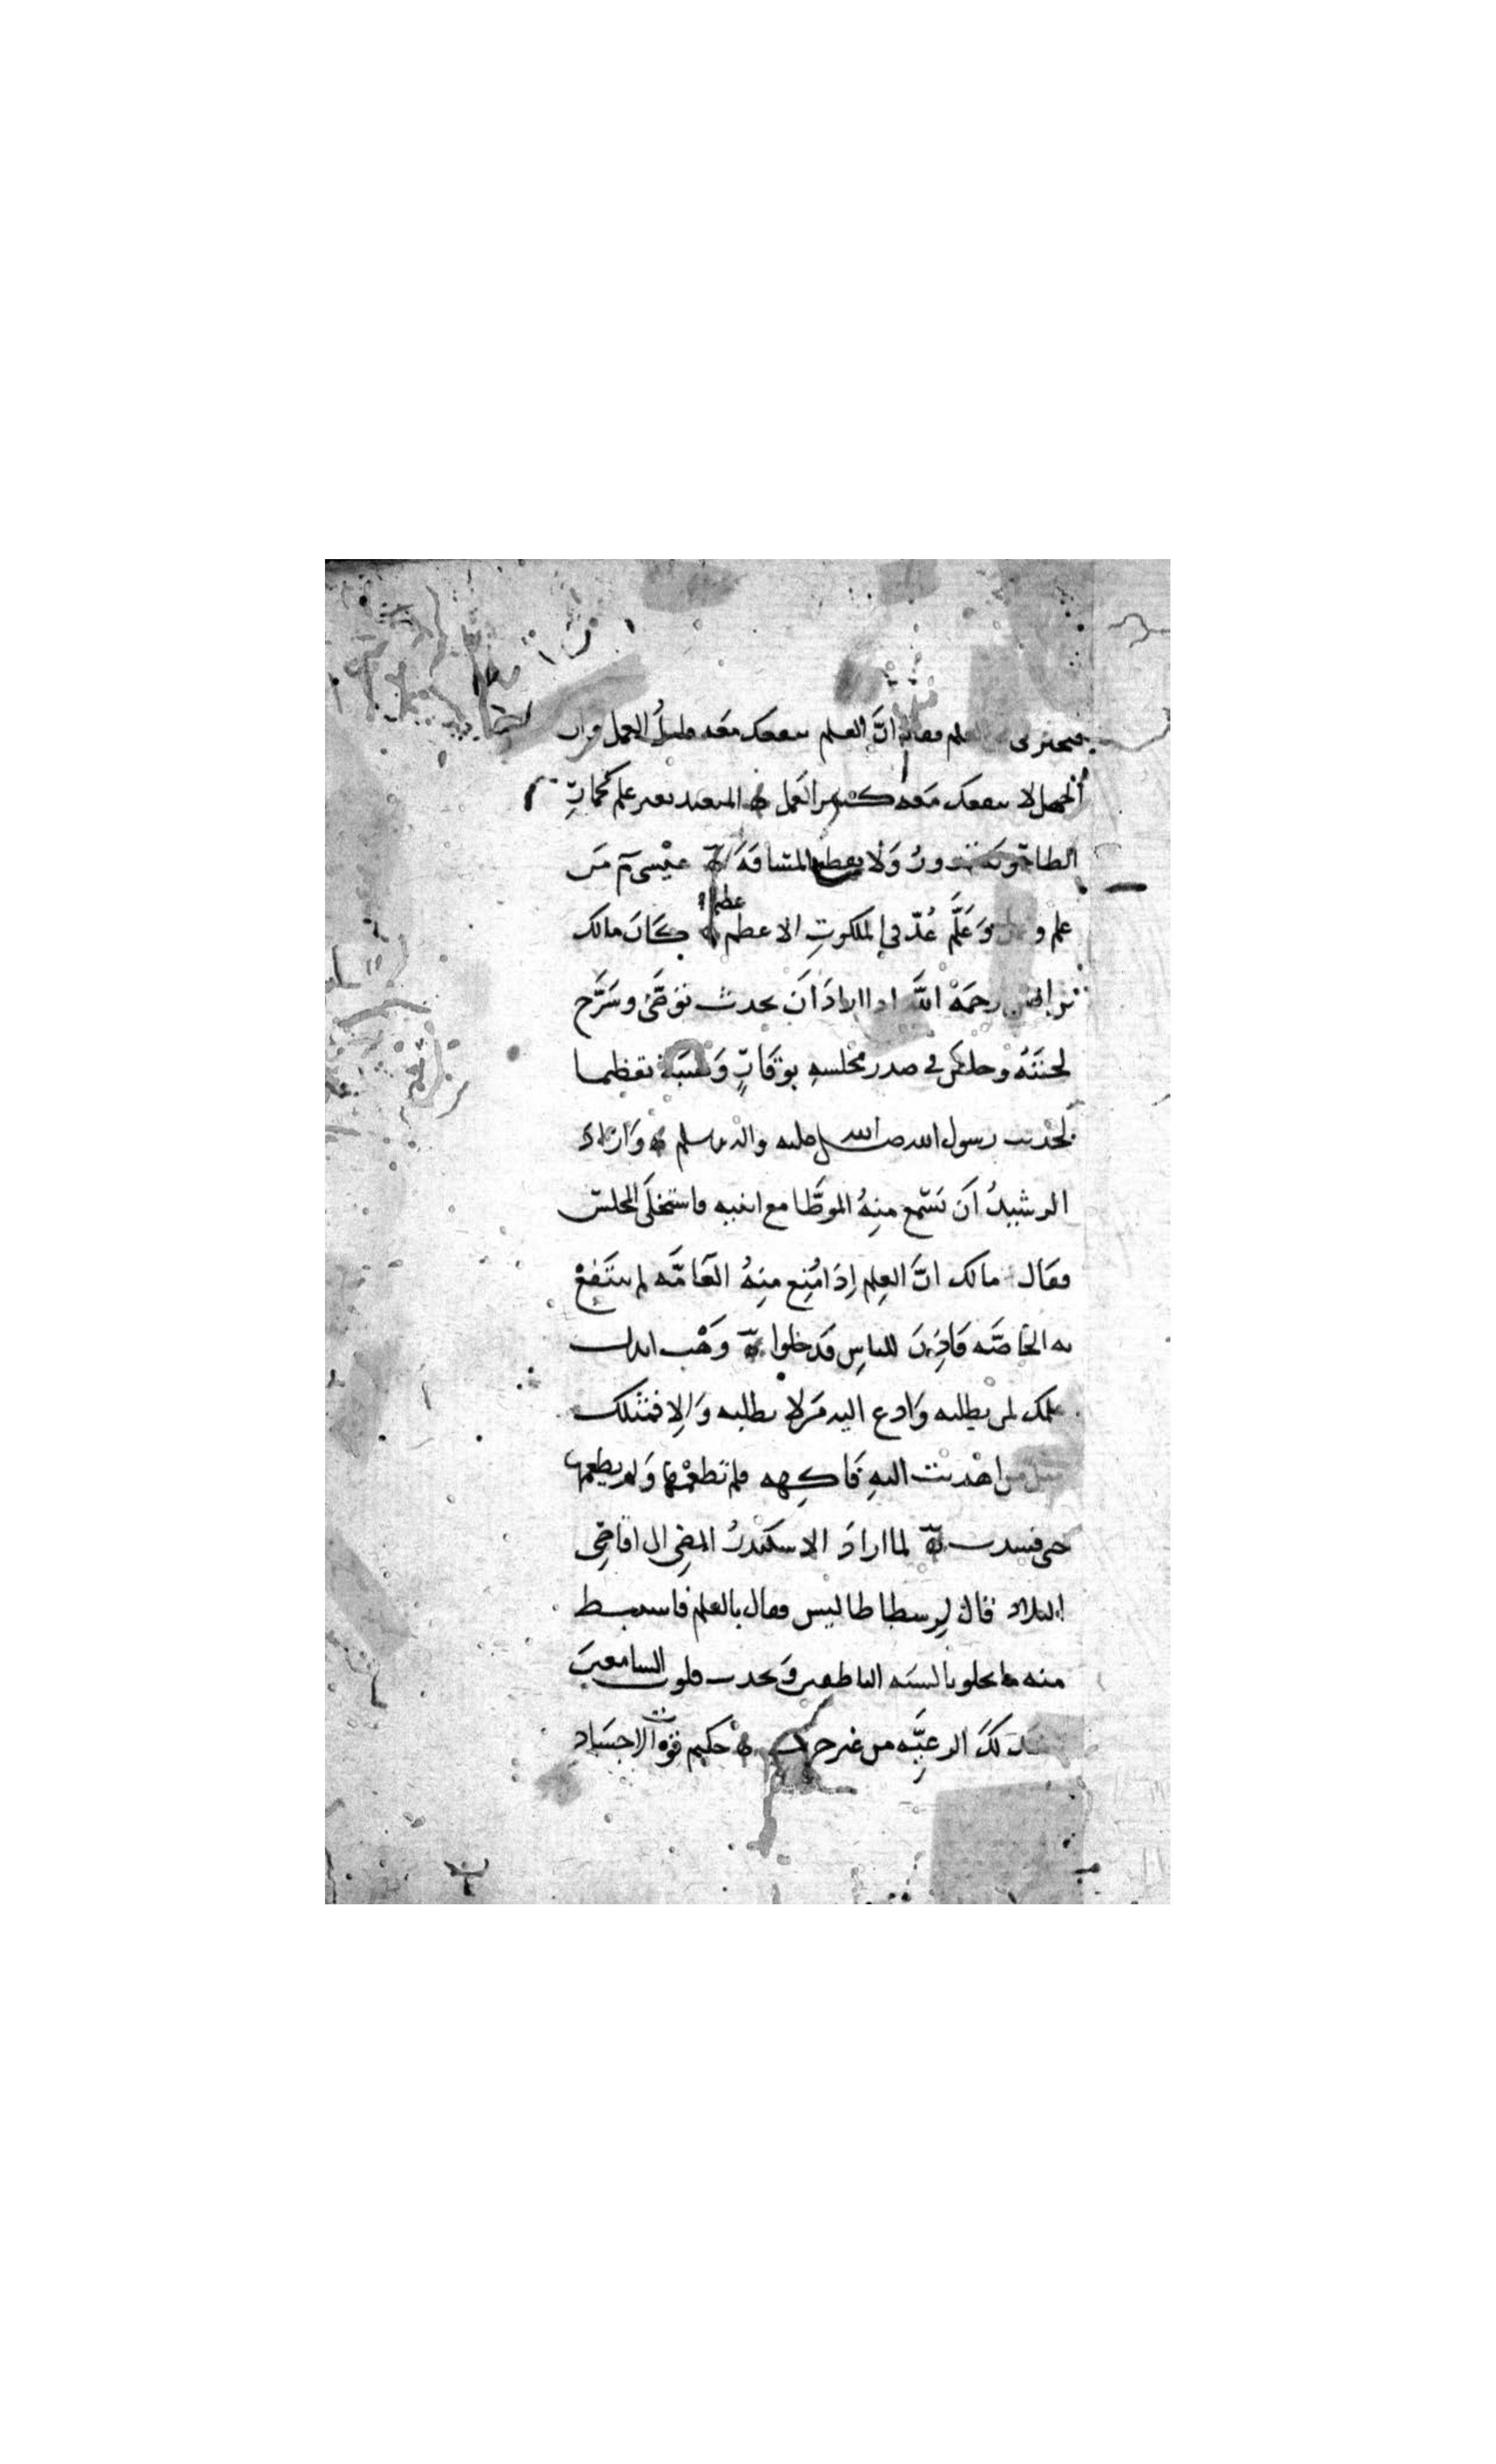 العلم فقال انَّ العلم ينفعك معَه قليلُ العمل وان
الجهل لا ينفعك مَعه كثير العَمل المتعبد بغير علم كحمارِ
الطاحونَة يدورُ وَلا يقطع المسَافَة عيْسى مَن
علم و وَعَلَّم عُدّ في الملكوتِ الاعظم عظيما كَانَ مالك
بن انس رحمَهُ اللَّه اذا ارادَ اَن يحدث توضَّئ وسَرَّح
لحيتَهُ وجلس في صدر مجلسهِ بوَقَارٍ وَهيبَة تعظيما
لحديث رسول الله صلى الله عليه واله وسلم وَارَادَ
الرشيدُ اَن يَسْمع منِهُ الموطَّا مع ابنيه فاستخلَى المجلسَ
فقَال مالك انَّ العِلم إِذَا مُنِع منِهُ العَامَّه لم ينتَفِعْ
به الخاصَّه فَاذِنَ للناسِ فَدخلوا وَهْب ابذل
علمك لمن يطلبه وَادع اليه مَن لا يطلبه وَالا فمَثَلك
مثل من اهْديت اليهِ فَاكِهه فلم تَطعَمْها وَلم يطعمها
حتى فسدت لما ارادَ الاسكندرُ المضِى الى اقاصِى
البلاد قال لارسطاطاليس فقال بالعلم فاستنبط
منه ما يحلو بالسنَه الناطقين وَيجذب قلوب السامعينَ
تنقد لَكَ الرعيَّه من غير حرب حكيم قوّة الاجسَاد